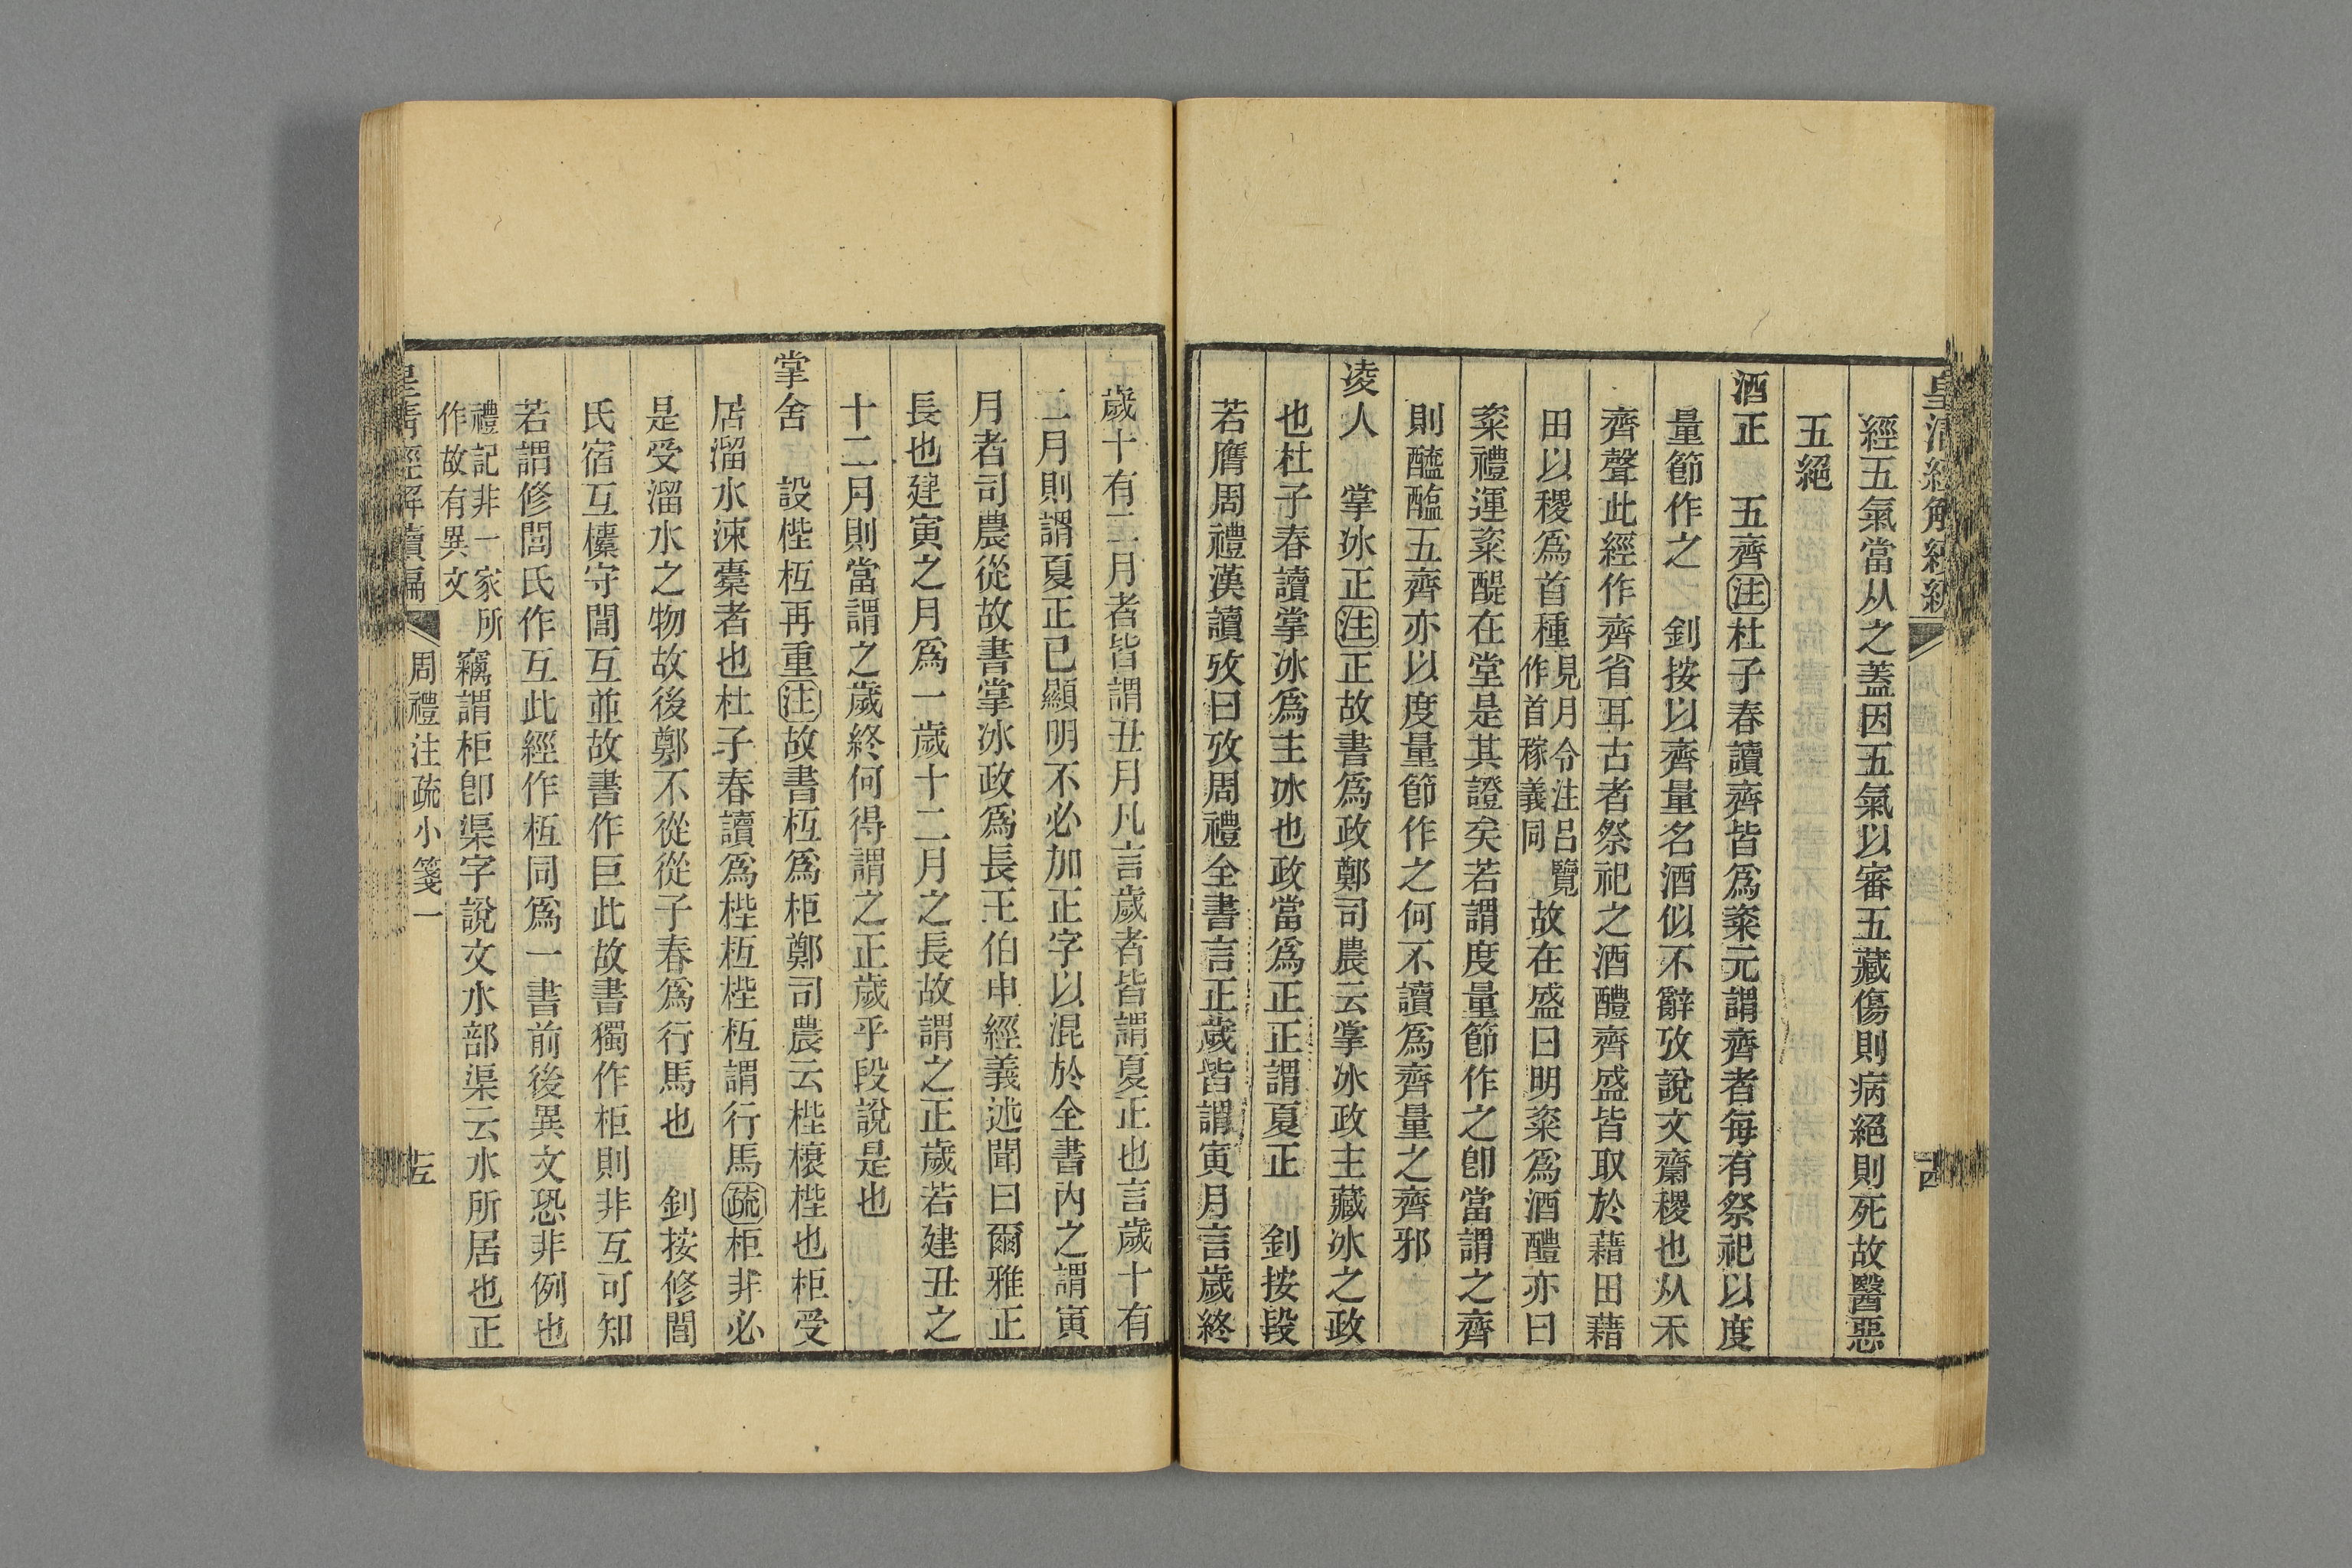 皇清經解續編
經五氣當从之蓋因五氣以審五藏傷則病絕則死故醫惡
五絕
酒正　五齊注杜子春讀齊皆爲粢元謂齊者每有祭祀以度
量節作之　釗按以齊量名酒似不辭攷說文齋稷也从禾
齊聲此經作齊省耳古者祭祀之酒醴齊盛皆取於藉田藉
田以稷爲首種見月令注呂覽作首稼義同故在盛曰明粢爲酒醴亦曰
粢禮運粢醍在堂是其證矣若謂度量節作之卽當謂之齊
則醯醢五齊亦以度量節作之何不讀爲齊量之齊邪
凌人　掌冰正注正故書爲政鄭司農云掌冰政主藏冰之政
也杜子春讀掌冰爲主冰也政當爲正正謂夏正　釗按段
若膺周禮漢讀攷曰攷周禮全書言正歲皆謂寅月言歲終
歲十有二月者皆謂丑月凡言歲者皆謂夏正也言歲十有
二月則謂夏正已顯明不必加正字以混於全書內之謂寅
月者司農從故書掌冰政爲長王伯申經義述聞曰爾雅正
長也建寅之月爲一歲十二月之長故謂之正歲若建丑之
十二月則當謂之歲終何得謂之正歲乎段說是也
掌舍　設梐枑再重注故書枑爲柜鄭司農云梐榱梐也柜受
居溜水涑橐者也杜子春讀爲梐枑梐枑謂行馬疏柜非必
是受溜水之物故後鄭不從從子春爲行馬也　釗按修閭
氏宿互㯱守閭互並故書作巨此故書獨作柜則非互可知
若謂修閭氏作互此經作枑同爲一書前後異文恐非例也
禮記非一家所作故有異文竊謂柜卽渠字說文水部渠云水所居也正
皇淸經解續編　周禮注疏小箋一